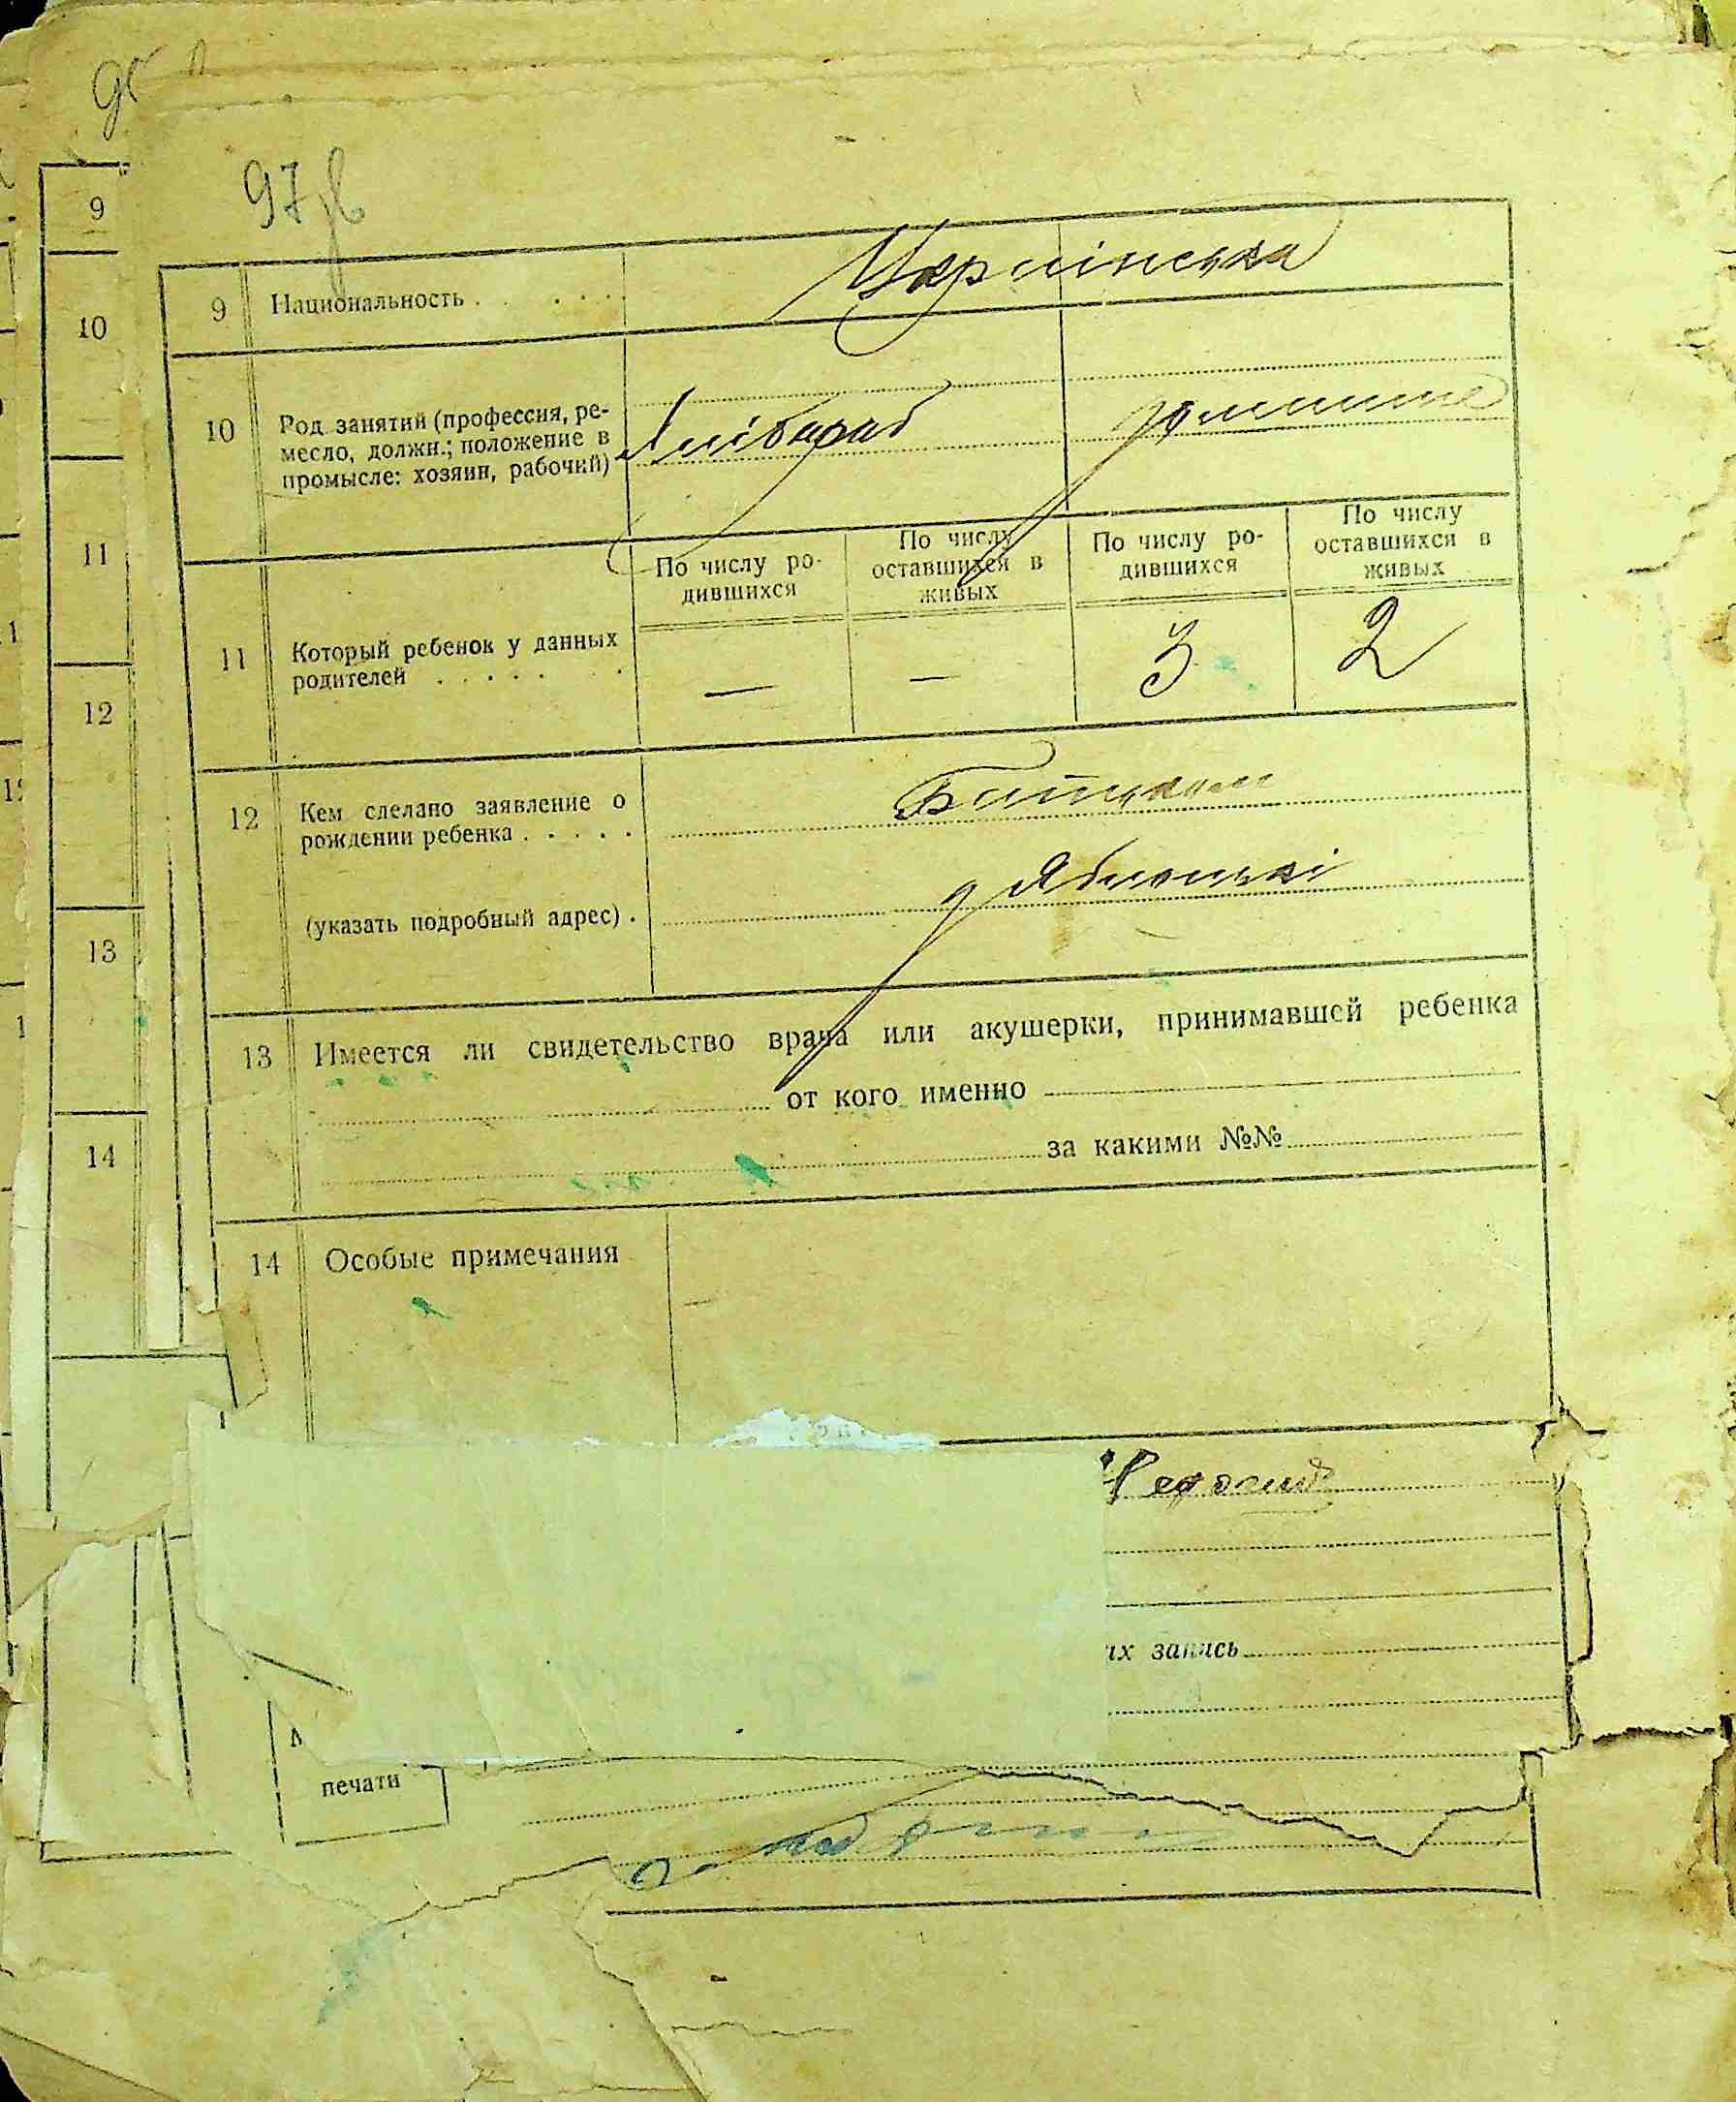 97
9
10
11
12
13
14
9 Национальность . . . . . . Украінська
10 Род занятий (профессия, ре-
месло, должн.; положение в
промысле: хозяин, рабочий)
Хлібороб
домашнє
По числу ро-
дившихся
По числу
оставшихся в
живых
По числу ро-
дившихся
По числу
оставшихся в
живых
11 Который ребенок у данных
родителей . . . . . . .
— — 3 2
12 Кем сделано заявление о
рождении ребенка . . . . .
Батьком
(указать подробный адрес) .
13 Имеется ли свидетельство врача или акушерки, принимавшей ребенка
от кого именно
за какими №№
14 Особые примечания
их запись
печати